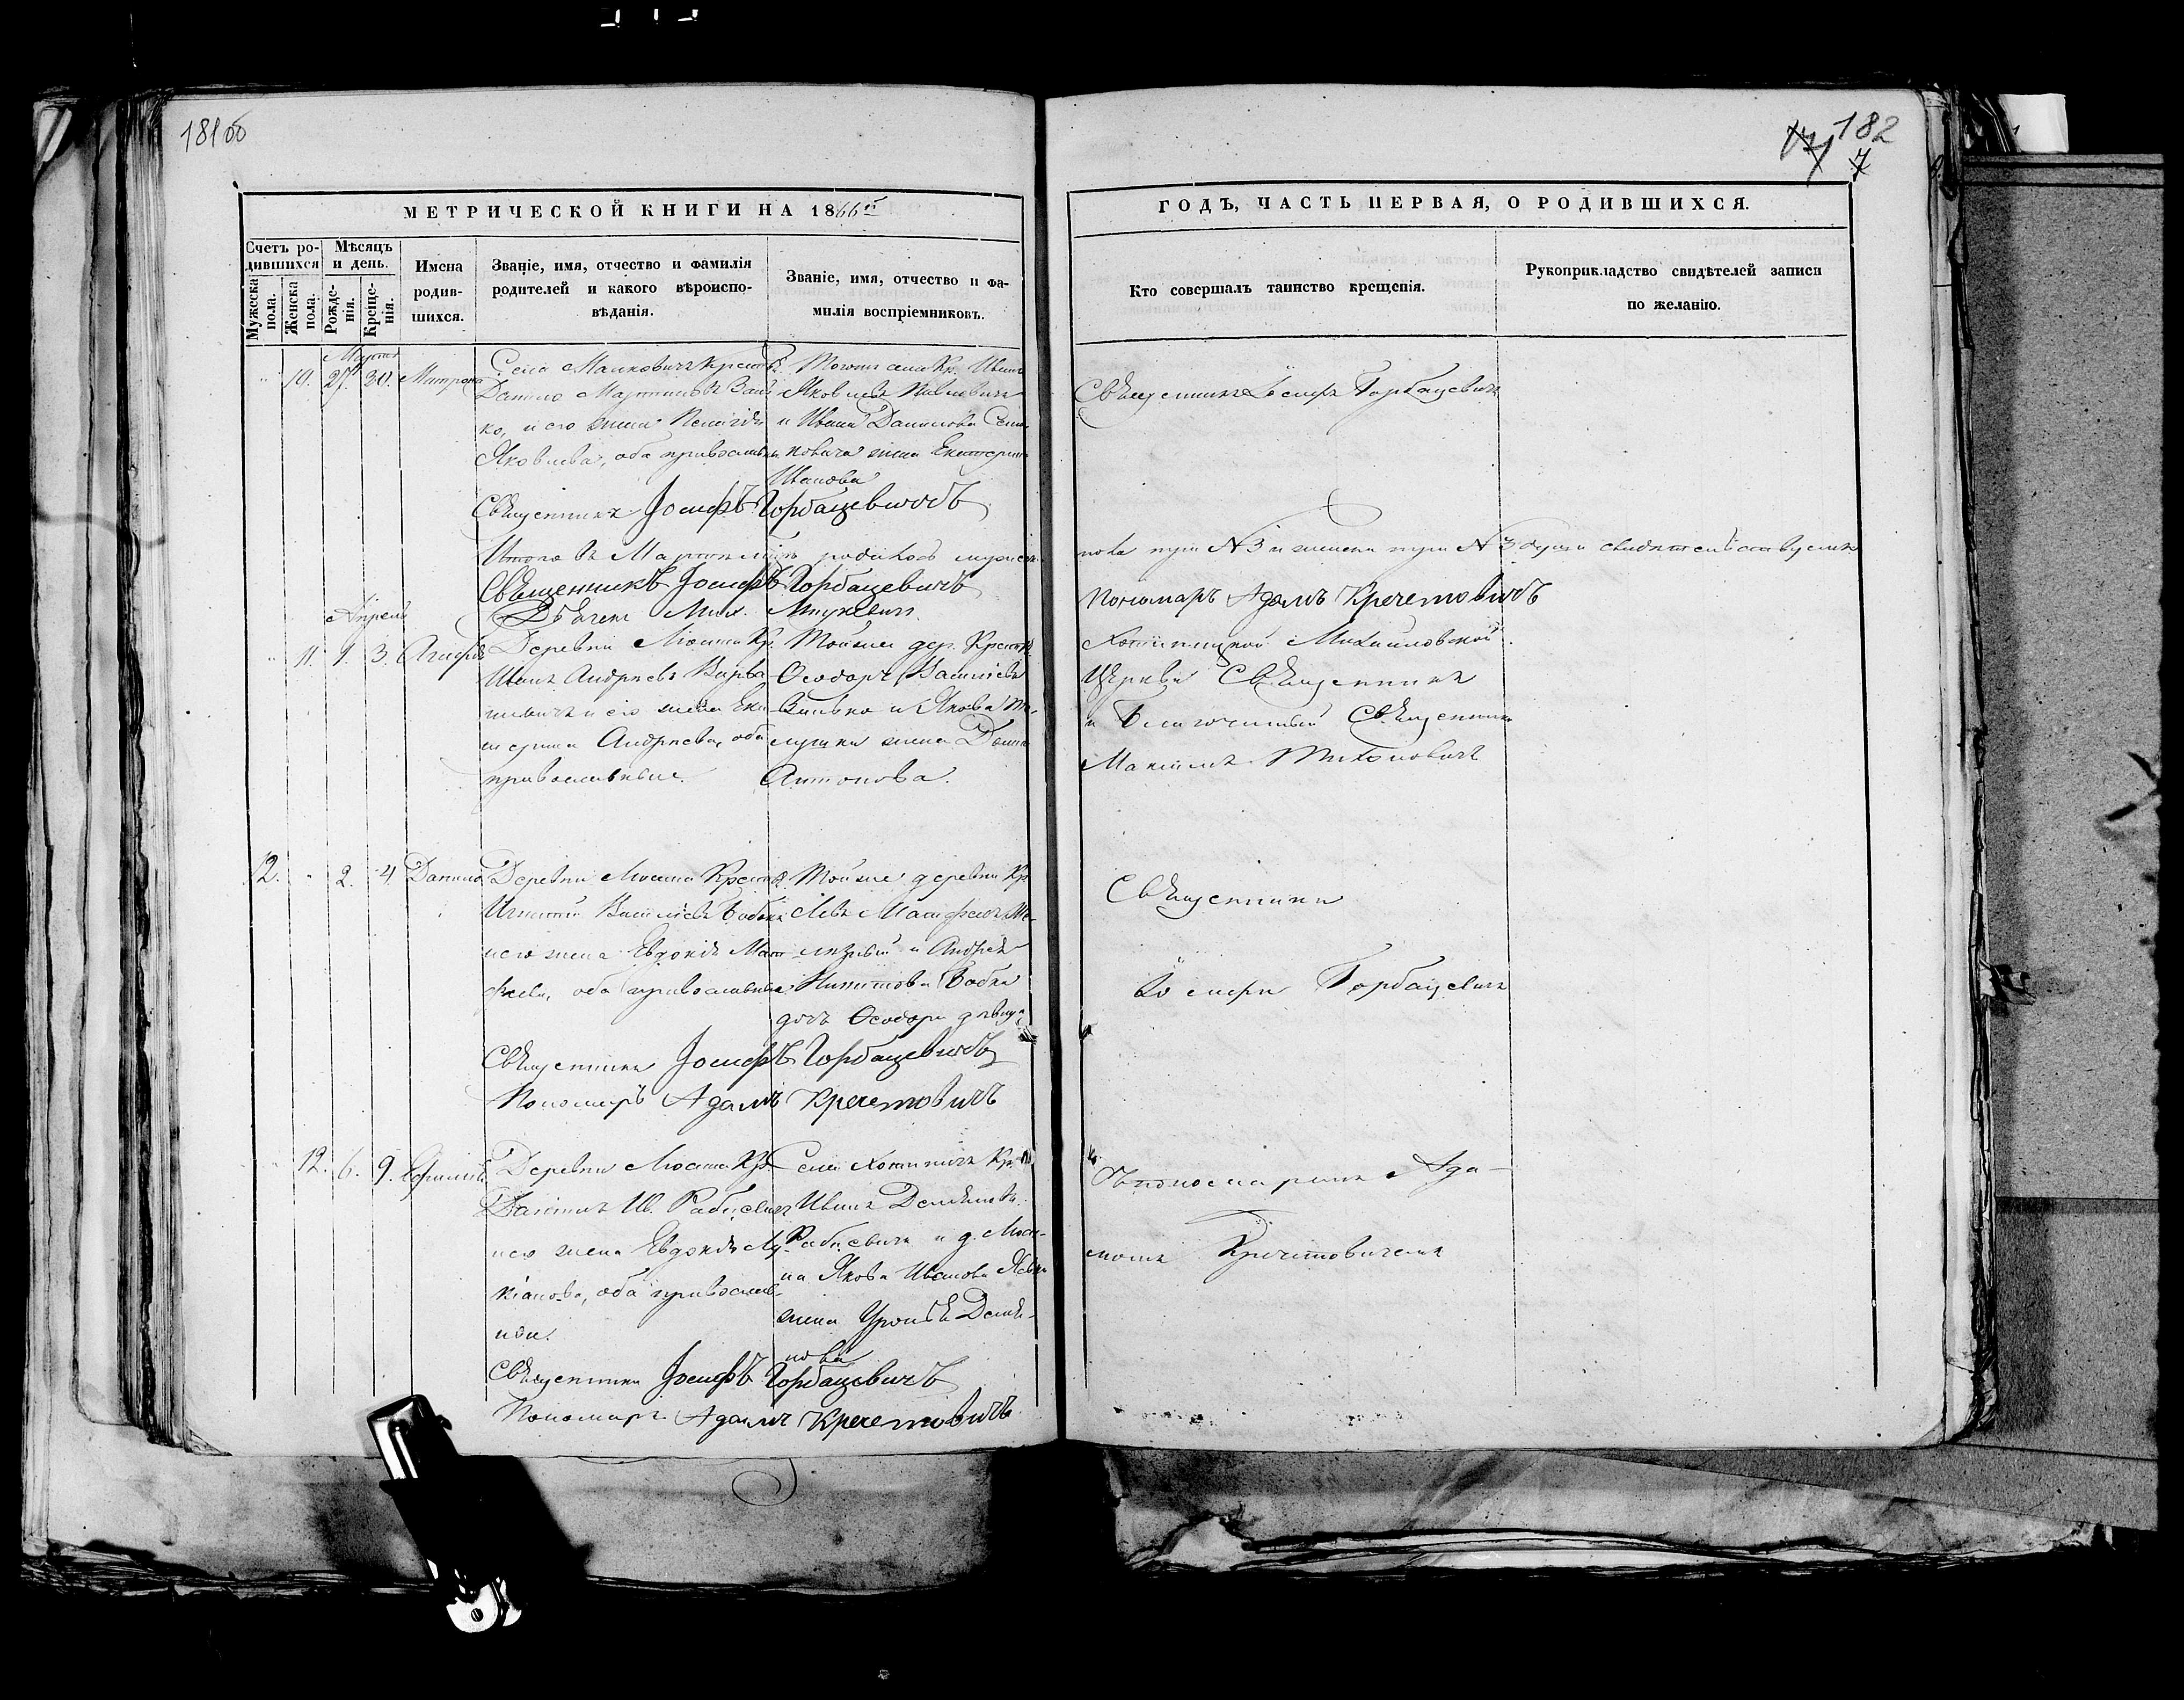 181 об
182
7
МЕТРИЧЕСКОЙ КНИГИ НА 1866й
ГОДЪ, ЧАСТЬ ПЕРВАЯ, О РОДИВШИХСЯ.
Счетъ ро-
дившихся
Мужеска
пола.
Женска
пола.
Мѣсяцъ
и день.
Рожде-
нія.
Креще-
нія.
Имена
родив-
шихся.
Званіе, имя, отчество и фамилія
родителей и какого вѣроиспо-
вѣданія.
Званіе, имя, отчество и фа-
милія воспріемниковъ.
Кто совершалъ таинство крещенія.
Рукоприкладство свидѣтелей записи
по желанію.
Мартъ
10. 27. 30. Матрона
Села Малковичъ Крест.
Данило Мартиновъ
ко, и его жена
Яковлева, оба православн.
Кр. Иванъ
Яковлевъ
и Ивана Данилова
жена Екатерина
Иванова
Священникъ Іосифъ Горбацевичъ
Священникъ Іосифъ Горбацевичъ
Итого въ Мартѣ родилось мужеска
пола № 3 и женска № 3
Священникъ Іосифъ Горбацевичъ
Пономарь Адамъ Кречетовичъ
Дьячекъ Мих.
Апрель
11. 1. 3. Агафія
Деревни Люсина Кр.
Иванъ Андреевъ
и его жена Ека-
терина Андреева, оба
православные.
Той же дер. Крест.
Ѳеодоръ Васильевъ
и Якова
жена Домна
Антонова.
Хотиницкой Михайловской
Церкви Священникъ
и Благочинный Священникъ
Максимъ Тихоновичъ
12. 2. 4. Данило
Деревни Люсина Крест.
Игнатій Васильевъ Бобко
и его жена Евдокія Мат-
феева, оба православные
Той же деревни Кр.
Левъ Матфеевъ
и Андрея
Никитова Бобка
дочь Ѳеодора дѣвица
Священникъ
Іосифъ Горбацевичъ
Священникъ Іосифъ Горбацевичъ
Пономарь Адамъ Кречетовичъ
12. 6. 9.
Деревни Люсина Кр.
Даніилъ Ив. Рабцевичъ
и его жена Евдокія Лу-
кіанова, оба православ-
ные.
Села Хотиничъ Кр.
Иванъ Демьяновъ
Рабцевичъ и д. Люси-
на Якова Иванова
жена Демья-
нова
Съ пономаремъ Ада-
момъ Кречетовичемъ
Священникъ Іосифъ Горбацевичъ
Пономарь Адамъ Кречетовичъ